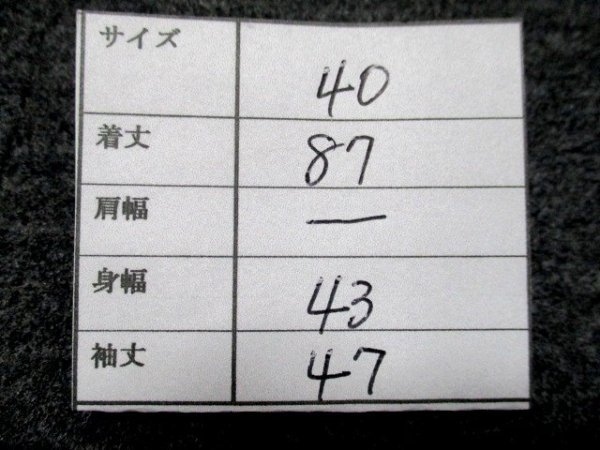 サイズ 40
着丈 87
肩幅 —
身幅 43
袖丈 47